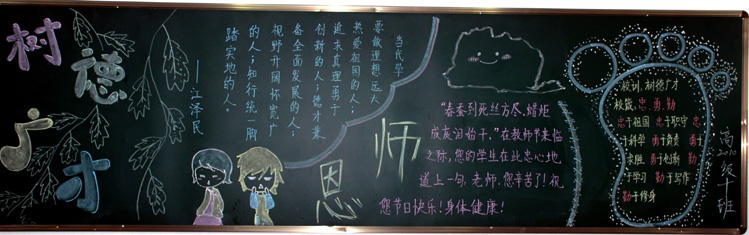 树德
广才
当代学
要敢理想远大
热爱祖国的人；
追求真理勇于
创新的人；德才兼
备全面发展的人；
视野开阔怀宽广
的人；知行统一脚
踏实地的人。
——江泽民
师恩
“春蚕到死丝方尽，蜡炬
成灰泪始干。”在教师节来临
之际，您的学生在此忠心地
道上一句，老师，您辛苦了！祝
您节日快乐！身体健康！
校训：树德广才
校箴：忠 勇 勤
忠于祖国 忠于职守 忠
于科学 勇于负责 勇于
求胜 勇于创新 勤
于学习 勤于写作
勤于修身
高2010级十班